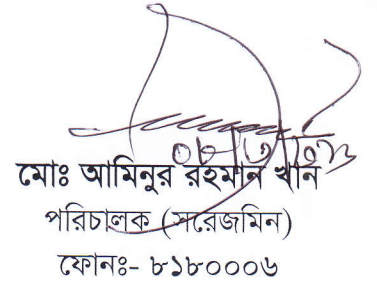 মোঃ আমিনুর রহমান খান
পরিচালক (সরেজমিন)
ফোনঃ- ৮১৮০০০৬